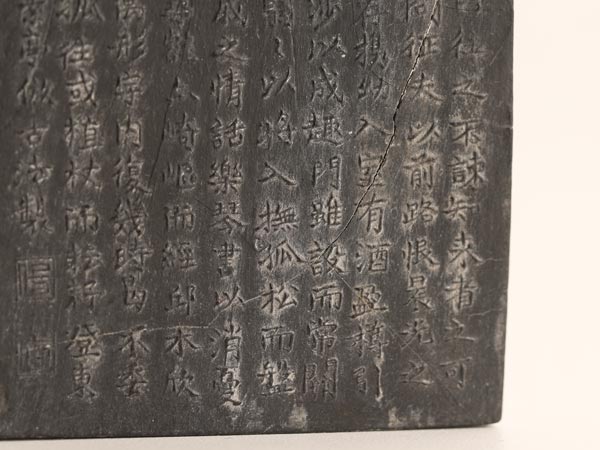 已往之不諫知来者之可
問征夫以前路恨晨光之
携幼入室有酒盈樽引
涉以成趣門雖設而常關
翳〻以将入撫孤松而盤
戚之情話樂琴書以消憂
壑亦崎嶇而經邱木欣
寓形宇内復幾時曷不委
孤往或植杖而耘籽登東
倣古法製